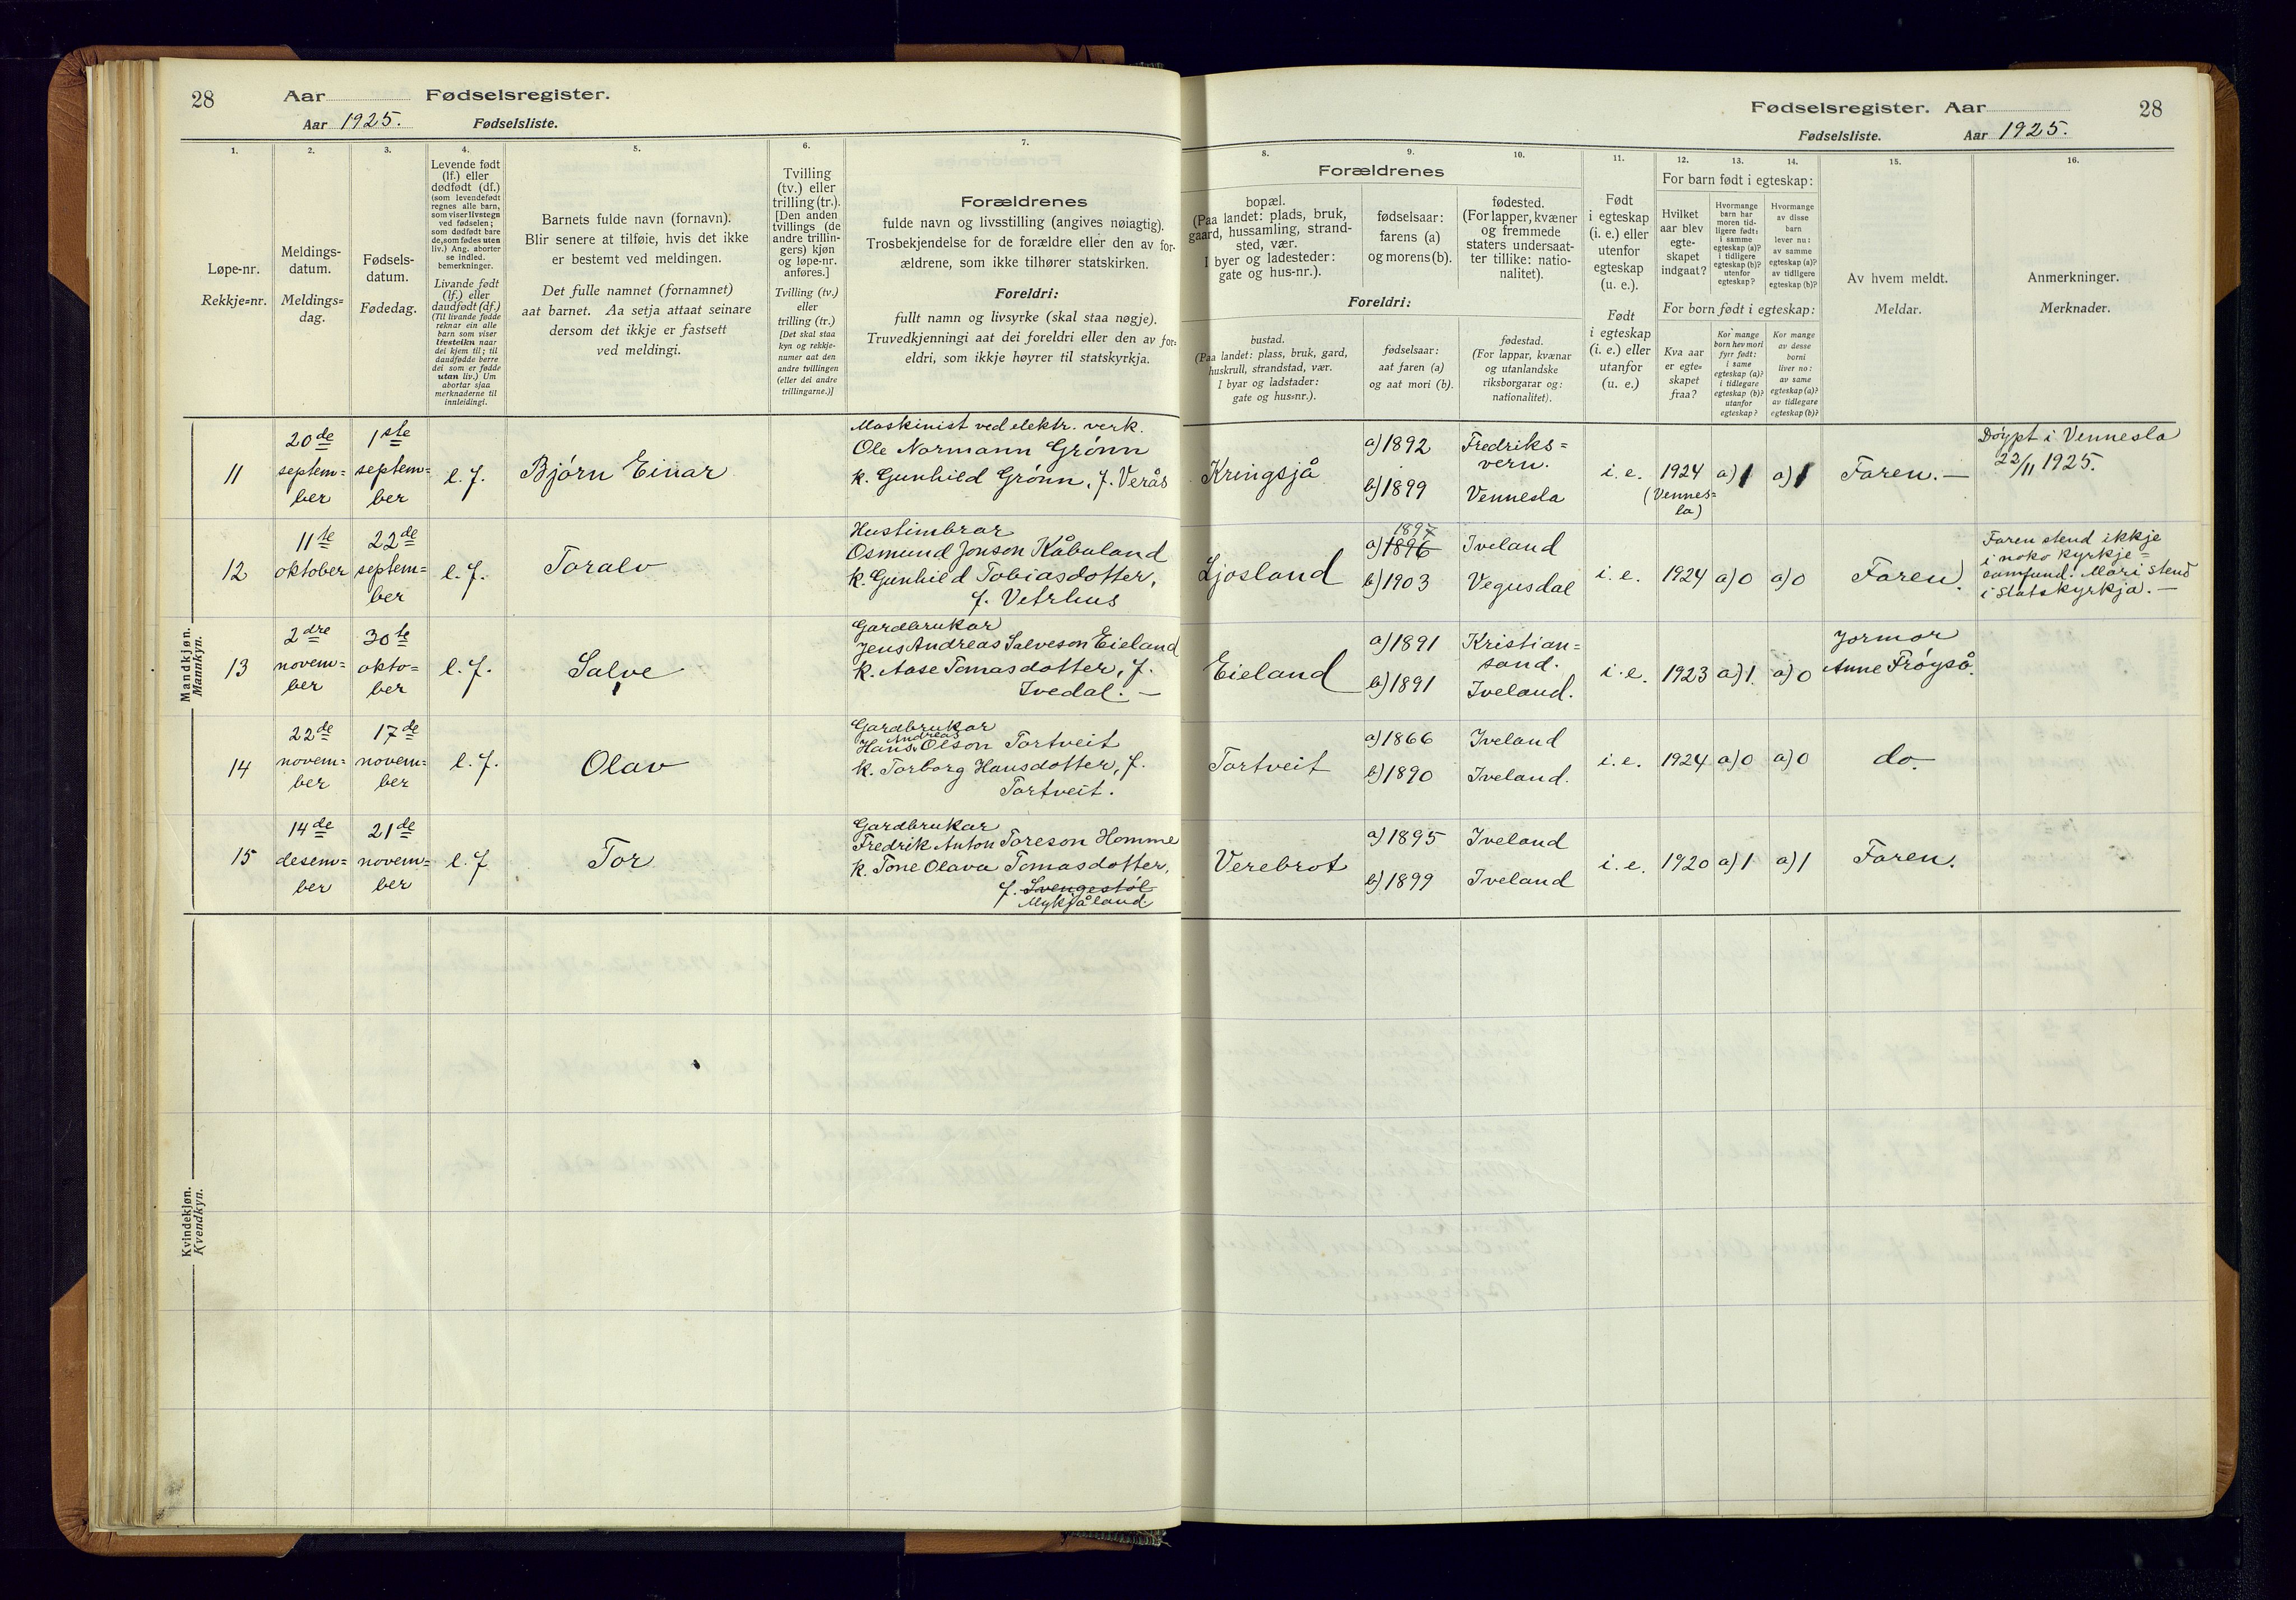 28
Aar
Fødselsregister.
Aar 1925.
Fødselsliste.
Fødselsregister. Aar
28
Fødselsliste.
Aar 1925.
1.
Løpe-nr.
Rekkje=nr.
2.
Meldings-
datum.
Meldings=
dag.
3.
Fødsels-
datum.
Fødedag.
4.
Levende født
(lf.) eller
dødfødt (df.)
(som levendefødt
regnes alle barn,
som viser livstegn
ved fødselen;
som dødfødt bare
de, som fødes uten
liv.) Ang. aborter
se indled.
bemerkninger.
Livande født
(lf.) eller
daudfødt (df.)
(Til livande fødde
reknar ein alle
barn som viser
livsteikn naar
dei kjem til; til
daudfødde berre
dei som er fødde
utan liv.) Um
abortar sjaa
merknaderne til
innleidingi.
5.
Barnets fulde navn (fornavn).
Blir senere at tilføie, hvis det ikke
er bestemt ved meldingen.
Det fulle namnet (fornamnet)
aat barnet. Aa setja attaat seinare
dersom det ikkje er fastsett
ved meldingi.
6.
Tvilling
(tv.) eller
trilling (tr.).
[Den anden
tvillings (de
andre trillin-
gers) kjøn
og løpe-nr.
anføres.]
Tvilling (tv.)
eller
trilling (tr.)
[Det skal staa
kyn og rekkje-
numer aat den
andre tvillingen
(eller dei andre
trillingarne.)]
7.
Forældrenes
fulde navn og livsstilling (angives nøiagtig).
Trosbekjendelse for de forældre eller den av for-
ældrene, som ikke tilhører statskirken.
Foreldri:
fullt namn og livsyrke (skal staa nøgje).
Truvedkjenningi aat dei foreldri eller den av for=
eldri, som ikkje høyrer til statskyrkja.
Forældrenes
8.
bopæl.
(Paa landet: plads, bruk,
gaard, hussamling, strand-
sted, vær.
I byer og ladesteder:
gate og hus-nr.).
9.
fødselsaar:
farens (a)
og morens (b).
10.
fødested.
(For lapper, kvæner
og fremmede
staters undersaat-
ter tillike: natio-
nalitet).
Foreldri:
bustad.
(Paa landet: plass, bruk, gard,
huskrull, strandstad, vær.
I byar og ladstader:
gate og hus=nr.).
fødselsaar:
aat faren (a)
og aat mori (b).
fødestad.
(For lappar, kvænar
og utanlandske
riksborgarar og:
nationalitet).
11.
Født
i egteskap
(i. e.) eller
utenfor
egteskap
(u. e.).
Født
i egteskap
(i. e.) eller
utanfor
(u. e.)
12.
13.
14.
For barn født i egteskap:
Hvilket
aar blev
egte-
skapet
indgaat?
Hvormange
barn har
moren tid-
ligere født:
i samme
egteskap (a)?
i tidligere
egteskap (b)?
utenfor
egteskap?
Hvormange
av disse
barn
lever nu:
av samme
egteskap (a)?
av tidligere
egteskap (b)?
For born født i egteskap:
Kva aar
er egte=
skapet
fraa?
Kor mange
born hev mori
fyrr født:
i same
egteskap (a)?
i tidlegare
egteskap (b)?
utanfor
egteskap?
Kor mange
av desse
borni
liver no:
av same
egteskap (a)?
av tidlegare
egteskap (b)?
15.
Av hvem meldt.
Meldar.
16.
Anmerkninger.
Merknader.
Mandkjøn.
Mannkyn.
11
20de
septem=
ber
1ste
septem=
ber
l. f.
Bjørn Einar
Maskinist ved elektr. verk.
Ole Normann Grønn
k. Gunhild Grønn, f. Verås
Kringsjå
a) 1892
b) 1899
Fredriks=
vern.
Vennesla
i. e.
1924
(Vennes=
la)
a) 1
a) 1
Faren. —
Døypt i Vennesla
22/11 1925.
12
11te
oktober
22de
septem=
ber
l. f.
Toralv
Hustimbrar
Osmund Jonson Kåbuland
k. Gunhild Tobiasdotter,
f. Vetrhus
Ljosland
1897
a) 1896
b) 1903
Iveland
Vegusdal
i. e.
1924
a) 0
a) 0
Faren.
Faren stend ikkje
i noko kyrkje=
samfund. Mori stend
i Statskyrkja. —
13
2dre
novem=
ber
30te
okto=
ber
l. f.
Salve
Gardbrukar
Jens Andreas Salveson Eieland
k. Aase Tomasdotter, f.
Ivedal. —
Eieland
a) 1891
b) 1891
Kristian=
sand.
Iveland.
i. e.
1923
a) 1.
a) 0
Jormor
Anne Frøyså.
14
22de
novem=
ber
17de
novem=
ber
l. f.
Olav
Gardbrukar
Andreas
Hans Olson Tortveit
k. Torborg Hansdotter, f.
Tortveit.
Tortveit
a) 1866
b) 1890
Iveland
Iveland.
i. e.
1924
a) 0
a) 0
do.
15
14de
desem=
ber
21de
novem=
ber
l. f
Tor
Gardbrukar
Fredrik Anton Toreson Homme
k. Tone Olava Tomasdotter,
f. Ivengestøl
Mykjåland.
Verebrot
a) 1895
b) 1899
Iveland
Iveland
i. e.
1920
a) 1
a) 1
Faren.
Kvindekjøn.
Kvendkyn.